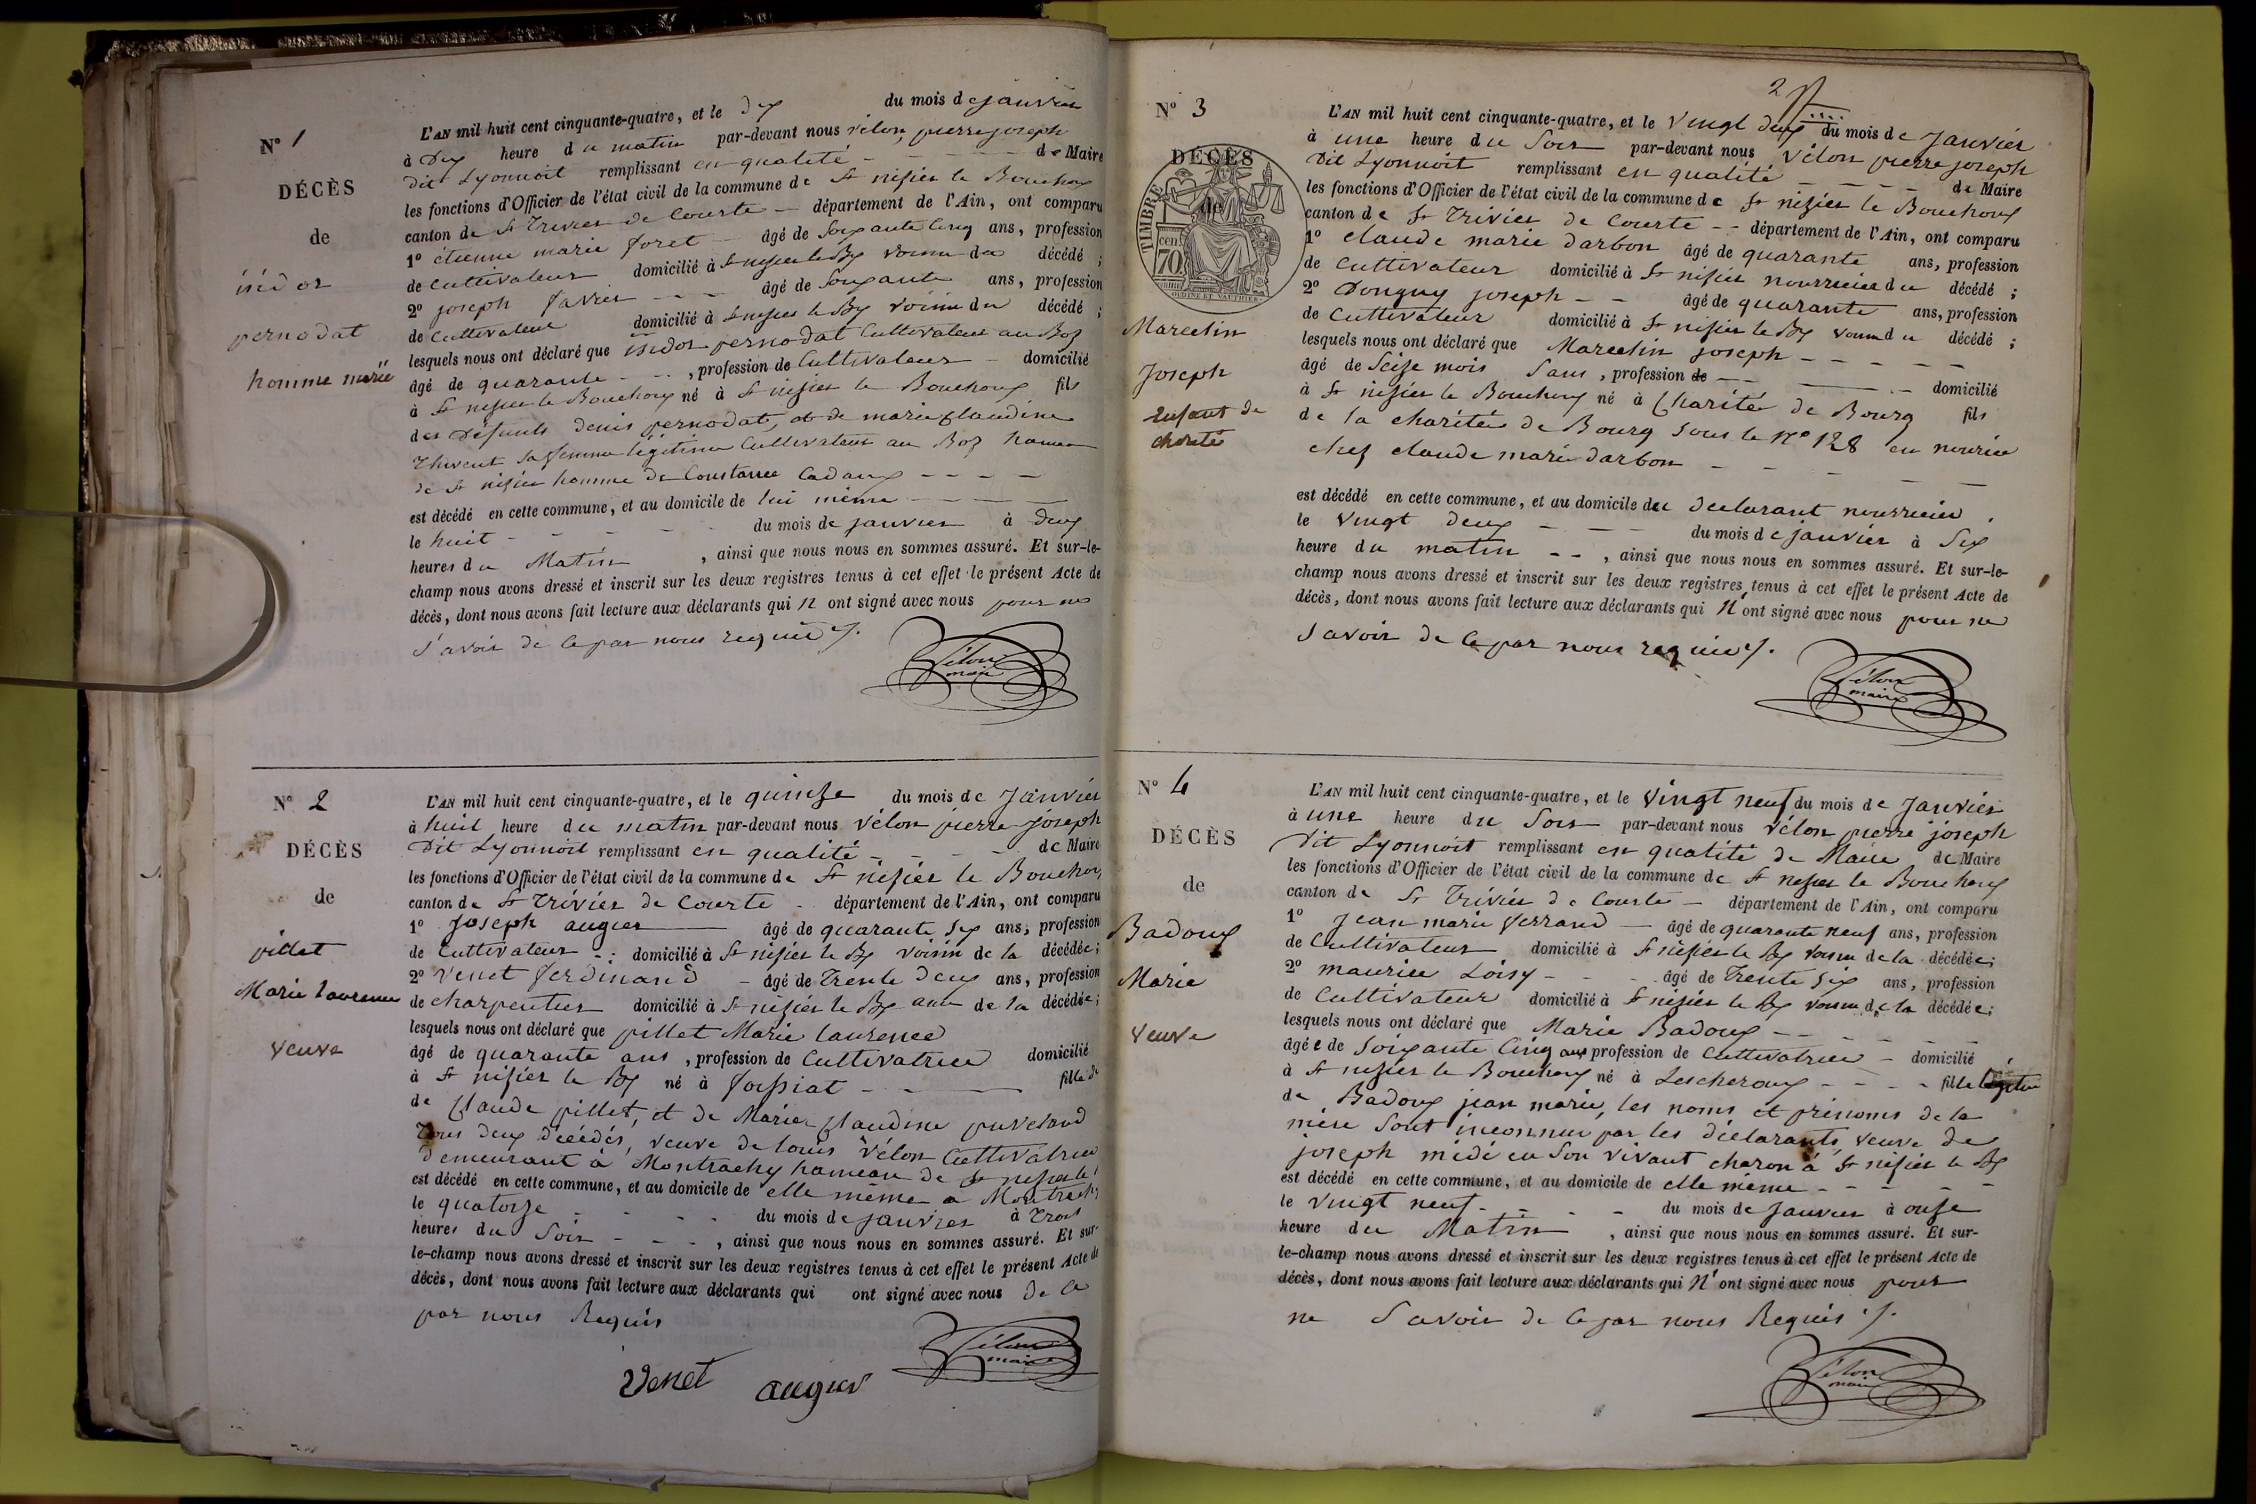 N° 1
DÉCÈS
de
isidor
pernodat
homme marié
L'AN mil huit cent cinquante-quatre, et le dix du mois de janvier
à Dix heure du matin par-devant nous vélon pierre joseph
dit Lyonnoit remplissant en qualité de Maire
les fonctions d'Officier de l'état civil de la commune de St nisier le Bouchoux
canton de St Trivier de Courte département de l'Ain, ont comparu
1° étienne marie foret âgé de Soixante Cinq ans, profession
de cultivateur domicilié à St nisier le Bx voisin du décédé ;
2° joseph favier âgé de Soixante ans, profession
de Cultivateur domicilié à St nisier le Bx voisin du décédé ;
lesquels nous ont déclaré que isidor pernodat Cultivateur au Boz
âgé de quarante , profession de Cultivateur domicilié
à St nisier le Bouchoux né à St nisier le Bouchoux fils
des Défunts denis pernodat, et de marie Claudine
Thivent sa femme légitime Cultivateur au Boz hameau
de St nisier homme de Constance Cadoux
est décédé en cette commune, et au domicile de lui même
le huit du mois de janvier à deux
heures du Matin , ainsi que nous nous en sommes assuré. Et sur-le-
champ nous avons dressé et inscrit sur les deux registres tenus à cet effet le présent Acte de
décès, dont nous avons fait lecture aux déclarants qui n ont signé avec nous pour ne
Savoir de ce par nous requis
Vélon
maire
N° 2
DÉCÈS
de
pillet
Marie laurence
veuve
L'AN mil huit cent cinquante-quatre, et le quinze du mois de Janvier
à huit heure du matin par-devant nous vélon pierre joseph
Dit Lyonnoit remplissant en qualité de Maire
les fonctions d'Officier de l'état civil de la commune de St nisier le Bouchoux
canton de St Trivier de Courte département de l'Ain, ont comparu
1° Joseph augier âgé de quarante six ans, profession
de Cultivateur domicilié à St nisier le Bx voisin de la décédée ;
2° Venet ferdinand âgé de Trente deux ans, profession
de charpentier domicilié à St nisier le Bx ami de la décédée ;
lesquels nous ont déclaré que pillet Marie laurence
âgé de quarante ans , profession de Cultivatrice domicilié
à St nisier le Bx né à foissiat fille de
de Claude pillet, et de Marie Claudine puveland
Tous deux décédés, veuve de louis vélon Cultivatrice
demeurant à Montrachy hameau de St nisier le
est décédé en cette commune, et au domicile de elle même a Montrachy
le quatorze du mois de janvier à Trois
heures du Soir , ainsi que nous nous en sommes assuré. Et sur-
le-champ nous avons dressé et inscrit sur les deux registres tenus à cet effet le présent Acte de
décès, dont nous avons fait lecture aux déclarants qui ont signé avec nous de ce
par nous Requis
Venet augier
Vélon
maire
2
N° 3
DÉCÈS
de
TIMBRE
cen
70
Marcelin
Joseph
Enfant de
charité
L'AN mil huit cent cinquante-quatre, et le vingt deux du mois de Janvier
à une heure du Soir par-devant nous Vélon pierre joseph
Dit Lyonnoit remplissant en qualité de Maire
les fonctions d'Officier de l'état civil de la commune de St nisier le Bouchoux
canton de St Trivier de Courte département de l'Ain, ont comparu
1° claude marie darbon âgé de quarante ans, profession
de Cultivateur domicilié à St nisier nourricier du décédé ;
2° Donguy joseph âgé de quarante ans, profession
de Cultivateur domicilié à St nisier le Bx voisin du décédé ;
lesquels nous ont déclaré que Marcelin joseph
âgé de Seize mois Sans , profession de domicilié
à St nisier le Bouchoux né à Charité de Bourg fils
de la charitée de Bourg sous le N° 128 en nourice
chez claude marie darbon
est décédé en cette commune, et au domicile du declarant nourricier
le vingt deux du mois de janvier à Six
heure du matin , ainsi que nous nous en sommes assuré. Et sur-le-
champ nous avons dressé et inscrit sur les deux registres tenus à cet effet le présent Acte de
décès, dont nous avons fait lecture aux déclarants qui n'ont signé avec nous pour ne
Savoir de ce par nous requis
Vélon
maire
N° 4
DÉCÈS
de
Badoux
Marie
veuve
L'AN mil huit cent cinquante-quatre, et le vingt neuf du mois de Janvier
à une heure du Soir par-devant nous vélon pierre joseph
Dit Lyonnoit remplissant en qualité de Maire de Maire
les fonctions d'Officier de l'état civil de la commune de St nisier le Bouchoux
canton de St Trivier de Courte département de l'Ain, ont comparu
1° Jean marie ferrand âgé de quarante neuf ans, profession
de Cultivateur domicilié à St nisier le Bx voisin de la décédée ;
2° maurice Loisy âgé de Trente six ans, profession
de Cultivateur domicilié à St nisier le Bx voisin de la décédée ;
lesquels nous ont déclaré que Marie Badoux
âgée de Soixante Cinq ans profession de Cultivatrice domicilié
à St nisier le Bouchoux né à Lescheroux fille légitime
de Badoux jean marie, les noms et prénoms de la
mère sont inconnus par les déclarants, veuve de
joseph midé en son vivant charon à St nisier le Bx
est décédé en cette commune, et au domicile de elle même
le vingt neuf du mois de janvier à onze
heure du Matin , ainsi que nous nous en sommes assuré. Et sur-
le-champ nous avons dressé et inscrit sur les deux registres tenus à cet effet le présent Acte de
décès, dont nous avons fait lecture aux déclarants qui n'ont signé avec nous pour
ne Savoir de ce par nous Requis
Vélon
maire